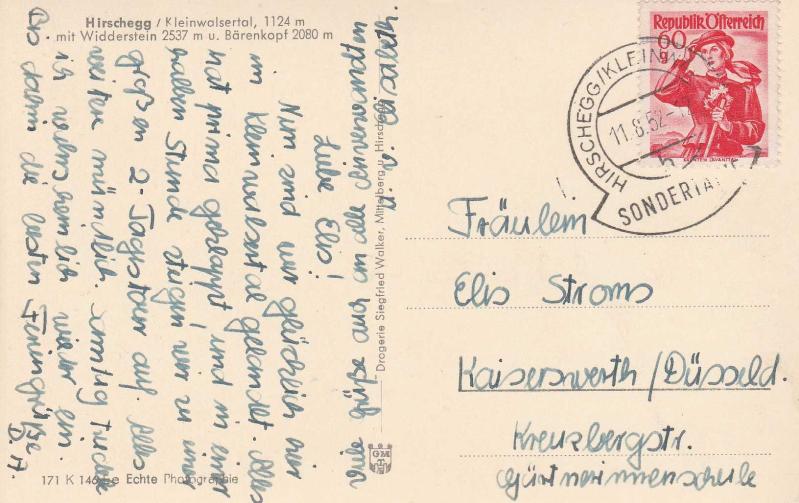 Hirschegg / Kleinwalsertal, 1124 m
mit Widderstein 2537 m u. Bärenkopf 2080 m
Liebe Elis!
Nun sind wir glücklich hier
im Kleinwalsertal gelandet. Alles
hat prima geklappt und in einer
halben Stunde steigen wir zu einer
großen 2-Tagstour auf. Alles
weitere mündlich. Samstag
ich wahrscheinlich wieder ein.
Bis dahin die besten Feriengrüße
D. A.
Viele Grüße auch an alle Anverwandten
Elisabeth.
Drogerie Siegfried Walker, Mittelberg u. Hirschegg
171 K 146 Echte Photographie
GM
Republik Österreich
60
g
KÄRNTEN LAVANTTAL
HIRSCHEGG/KLEINW
11.8.52
SONDERTA
Fräulein
Elis Stroms
Kaiserswerth/Düsseld.
Kreuzbergstr.
Gärtnerinnenschule